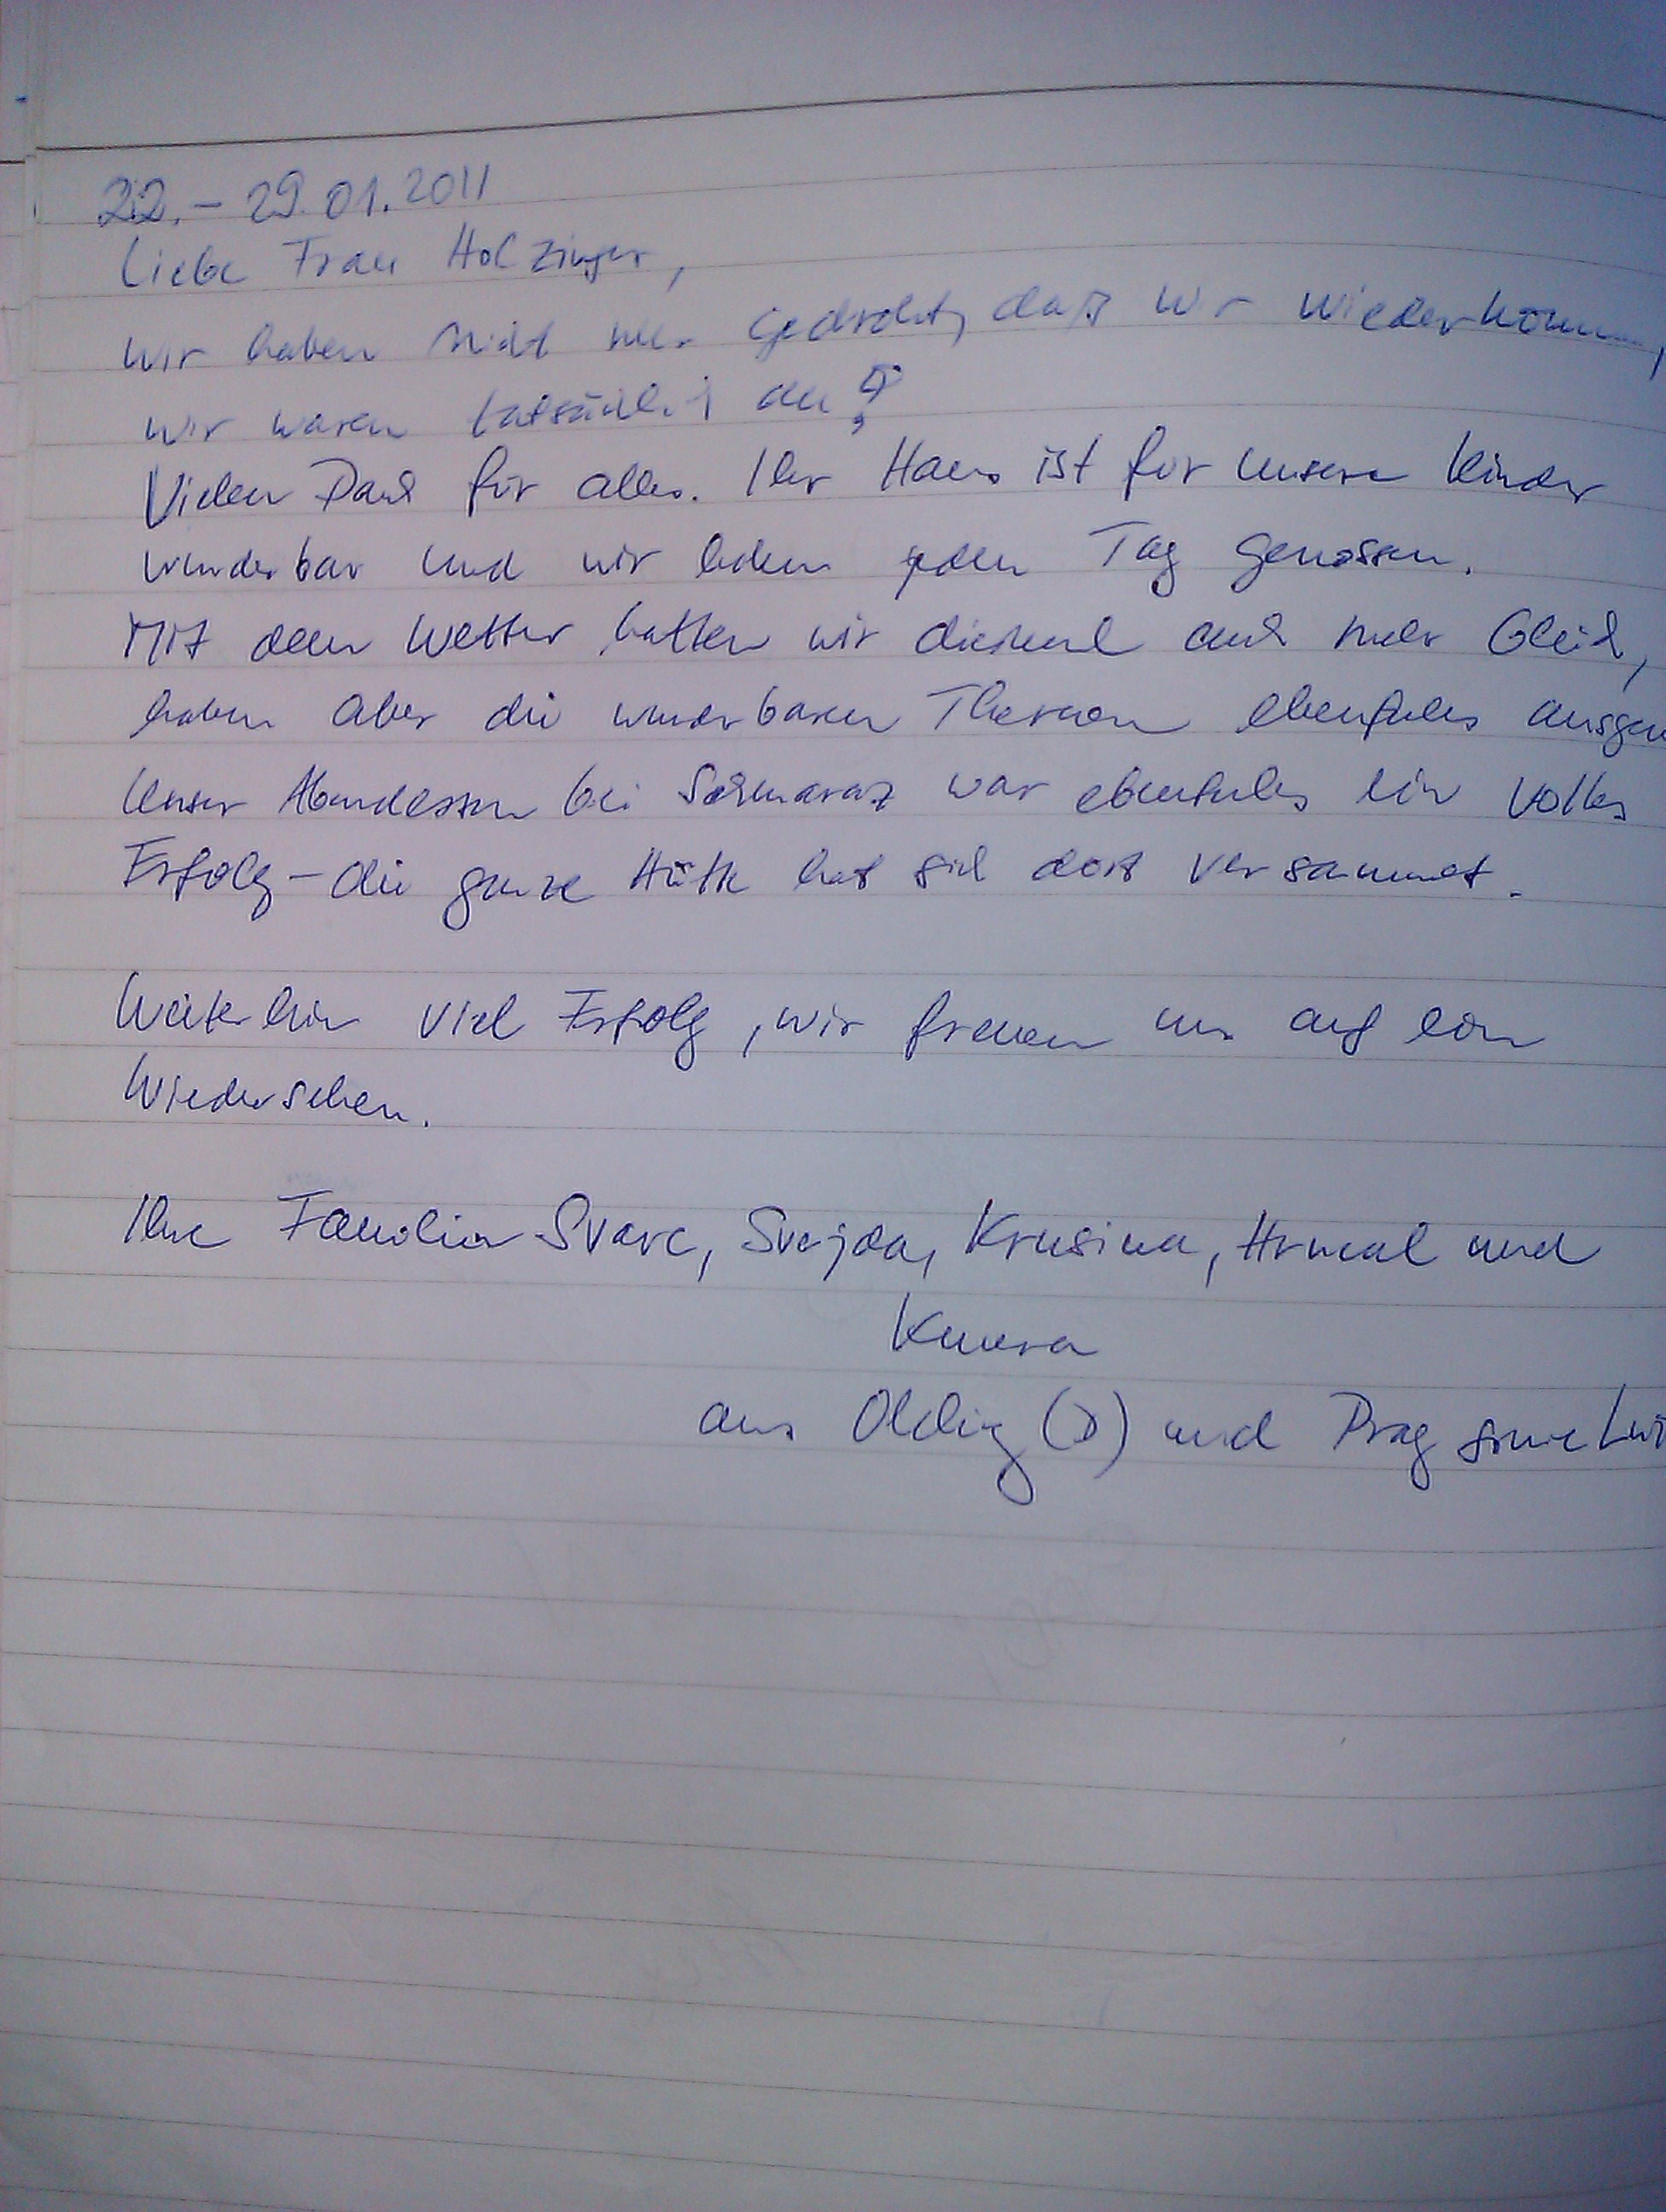 22. - 29.01.2011
Liebe Frau Holzinger,
wir haben nicht nur gedacht, daß wir wiederkommen,
wir waren tatsächlich da!
Vielen Dank für alles. Ihr Haus ist für unsere Kinder
wunderbar und wir haben jeden Tag genossen.
Mit dem Wetter hatten wir diesmal auch mehr Glück,
haben aber die wunderbaren Thermen ebenfalls
Unser Abendessen bei war ebenfalls ein voller
Erfolg - die ganze Hütte hat sich dort versammelt.
Weiterhin viel Erfolg, wir freuen uns auf ein
Wiedersehen.
Ihre Familien Svarc, Svejda, Krusina, Hrncal und
aus (D) und Prag sowie